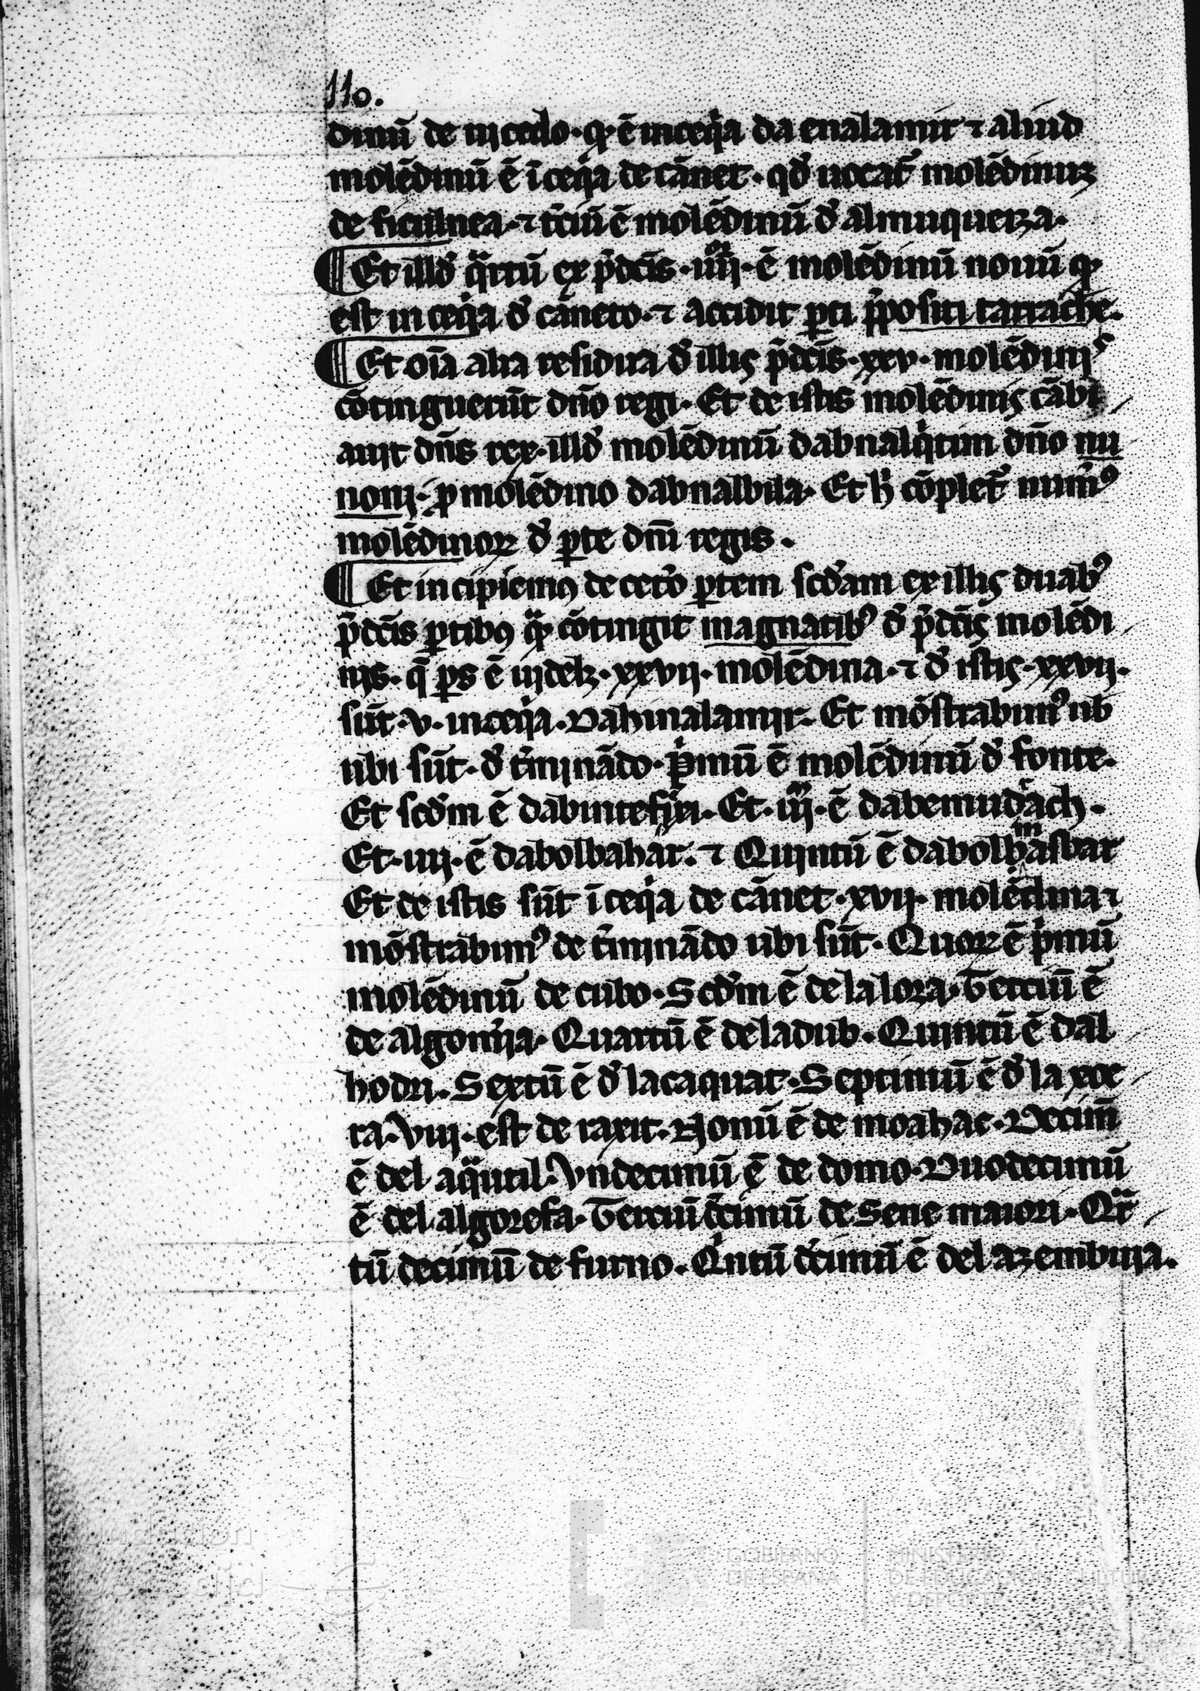 110.
dinū de mcelo · q̇ · ē inceq̇a da enalamir ⁊ aliud
molēdinū ē ī ceq̇a de cānet · qđ uocat᷑ molēdinuꝫ
de ficulnea · ⁊ t̄ciū ē molēdinū đ almuqueiza ·
¶ Et illđ q̄rtū ex p̄dcīs · iiij · ē molēdinū nouū qꝫ
est in ceq̇a đ cāneto · ⁊ accidit ꝑti p̄positi tarrache ·
¶ Et oīa alia residua đ illis p̄dcīs · xxv · molēdinis
cōtinguerūt dn̄o regi · Et de istis molēdinis cābi
auit dn̄s rex · illđ molēdinū dabnalq̇tim dn̄o nu
noni · ꝓ molēdino dabnalbila · Et h̄ cōplet᷑ num̄ꝰ
molēdinoꝝ đ ꝑte dn̄i regis .
¶ Et incipiemꝰ de cet̄o ꝑtem scđam ex illis duabꝰ
p̄dcīs ꝑtibꝰ q̄ cōtingit magnatibꝰ đ p̄dcīs molēdi
nis · q̄ ꝑs ē uidelꝫ · xxvii · molēdina · ⁊ đ istis · xxvii ·
sūt · v · inceq̇a · Dahinalamir · Et mōstrabimꝰ ub
ubi sūt · đ t̄minādo · p̄imū ē molēdinū đ fonte ·
Et scđm ē Et · iij · ē dabemudach ·
Et · iiij · ē dabolbahar · ⁊ Quintū ē
Et de istis sūt ī ceq̇a de cānet · xvii · molēdina ⁊
mōstrabimꝰ de t̄minādo ubi sūt · Quoꝝ ē p̄mū
molēdinū de cubo · Scđm ē de la lora · Terciū ē
de algomīa · Quartū ē de ladub · Quintū ē dal
hodri · Sextū ē đ lacaquat · Septimū ē đ la xoc
ra · viii · est de raxit · Nonū ē de moahac · Decim̄
ē del aq̄util · Vndecimū ē de domo · Duodecimū
ē del algorefa · Terciū dc̄imū de Sene maiori · Qr̄
tū decimū de furno · Q̇ntū dc̄imū ē del azembuia .
GOBIERNO
DE ESPAÑA
MINISTERIO
DE EDUCACIÓN, CULTURA
Y DEPORTE